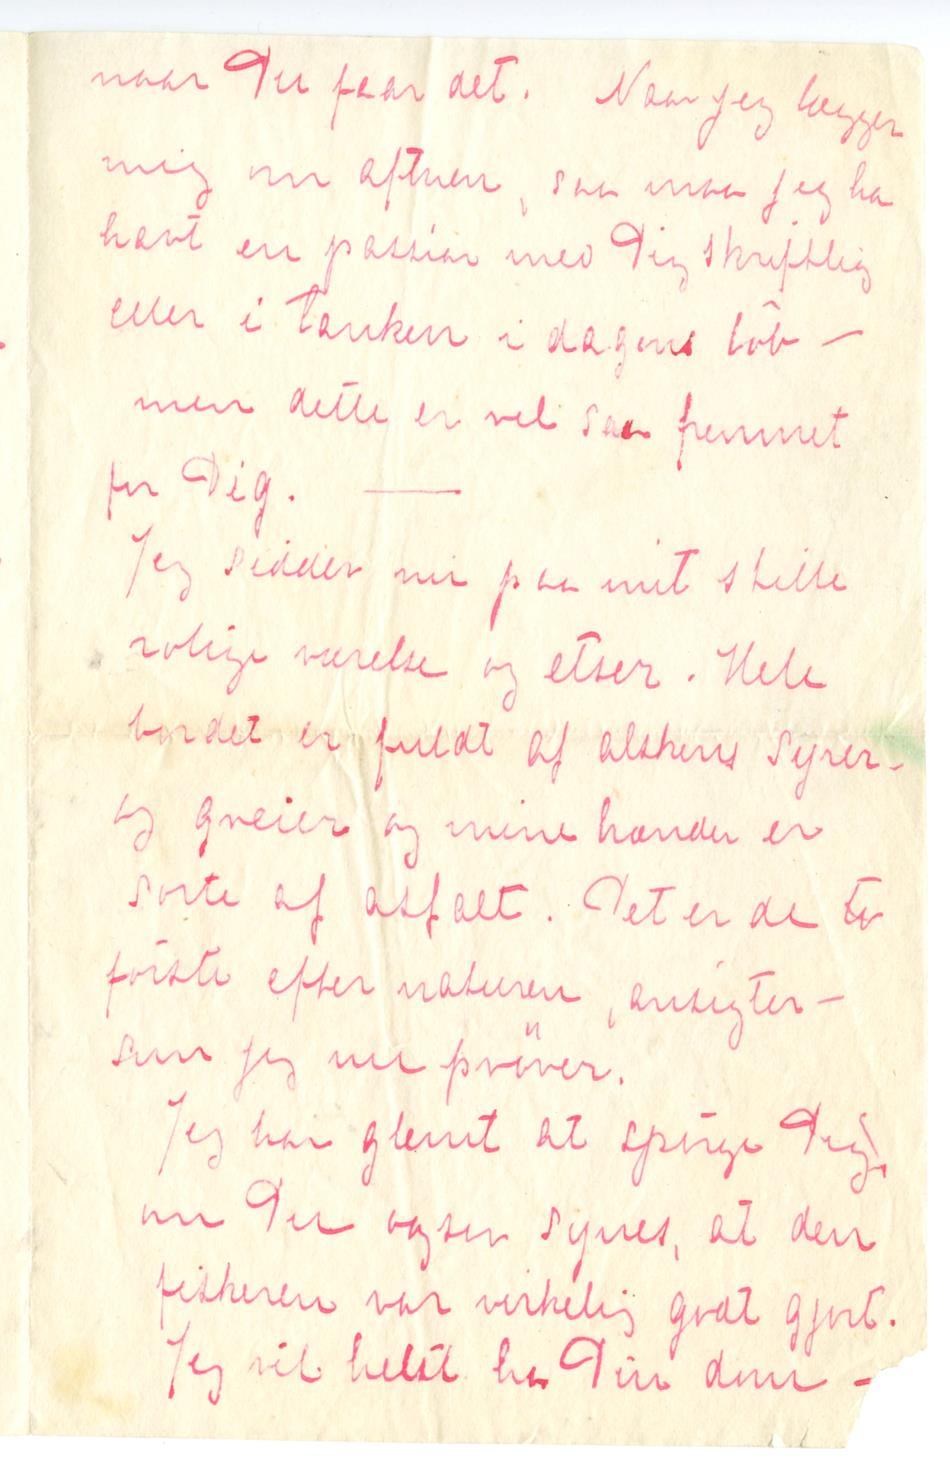 naar Du faar det. Naar jeg lægger
mig om aftnen, saa maa jeg ha
havt en passiar med Dig skriftlig
eller i tanken i dagens löb —
men dette er vel saa fremmet
for Dig. —
Jeg sidder nu paa mit stille
rolige værelse og etser. Hele
bordet er fuldt af alskens syrer-
og greier og mine hænder er
sorte af asfalt. Det er de to
förste efter naturen, ansigter —
som jeg nu pröver.
Jeg har glemt at spörge Dig,
om Du ogsaa synes, at den
fiskeren var virkelig godt gjort.
Jeg vil helst ha Din dom —